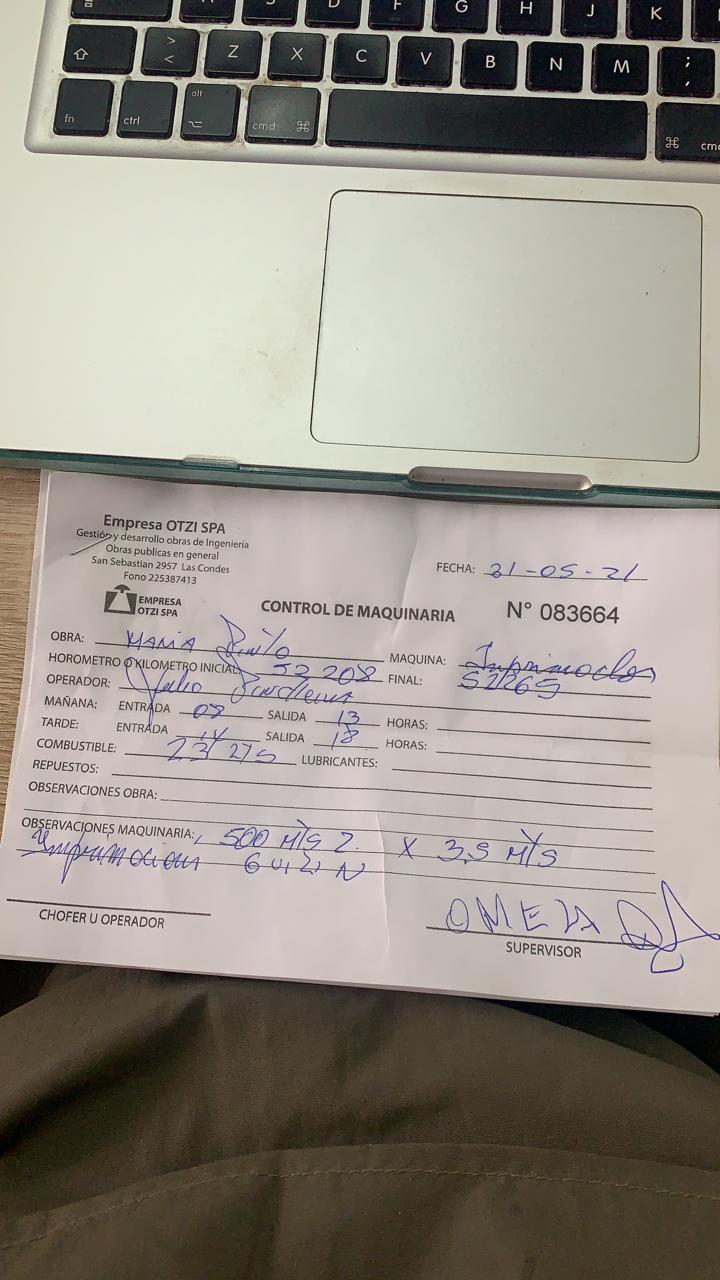 D F G H J K
> < Z X C V B N M ; ,
fn ctrl alt cmd ⌘ ⌘
Empresa OTZI SPA
Gestión y desarrollo obras de Ingeniería
Obras publicas en general
San Sebastian 2957 Las Condes
Fono 225387413
EMPRESA
OTZI SPA
FECHA: 21-05-21
CONTROL DE MAQUINARIA N° 083664
OBRA: MARIA Pinto MAQUINA:
HOROMETRO O KILOMETRO INICIAL: 52 208 FINAL: 52265
OPERADOR: Julio
MAÑANA: ENTRADA 08 SALIDA 13 HORAS:
TARDE: ENTRADA 14 SALIDA 18 HORAS:
COMBUSTIBLE: LUBRICANTES:
REPUESTOS:
OBSERVACIONES OBRA:
OBSERVACIONES MAQUINARIA: 500 MTS 2. X 3.5 MTS
Imprimacion
CHOFER U OPERADOR
SUPERVISOR